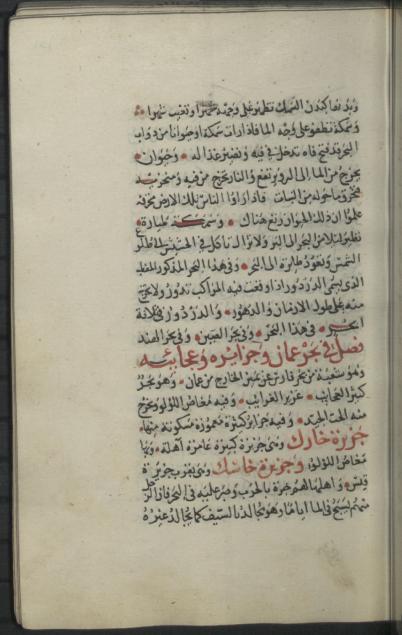 وبدنها كبدن السمك تظهر على وجه الماء شهرا وتغيب شهرا
وسمكة تطفو على وجه الما فاذا رات سمكة او حيوانا من دواب
البحر قد فتح فاه تدخل في فيه وتصير غذا له وحيوان
يخرج من الما الى البر ويرتفع والنار تخرج من فيه ومنخريه
فتحرق ما حوله من النبات فاذا راوا الناس تلك الارض محرقة
علموا ان ذلك الحيوان رتع هناك وسمكة طيارة
تطير ليلا من البحر الى البر ولا تزال تاكل في الحشيش الى طلوع
الشمس وتعود طايرة الى البحر وفي هذا البحر المذكور المنقلب
الذي يسمى الدردور اذا وقعت فيه المراكب تدور ولا تخرج
منه على طول الازمان والدهور والدردور في ثلاثة
ابحر في هذا البحر وفي بحر الصين وفي بحر الهند
فصل في بحر عمان وجزايره وعجايبه
وهو شعبة من بحر فارس عن يمين الخارج من عمان وهو بحر
كثير العجايب غزير الغرايب وفيه مغاص اللولو ويخرج
منه الحب الجيد وفيه جزاير كثيرة معمورة مسكونة منها
جزيرة خارك وهي جزيرة كبيرة عامرة اهلة وبها
مغاص اللولو وجزيرة خاسك وهي بقرب جزيرة
قيس واهلها لهم خبرة بالحرب وصبر عليه في البحر فان الرجل
منهم يسبح في الما اياما وهو يجالد بالسيف كما يجالد غيره